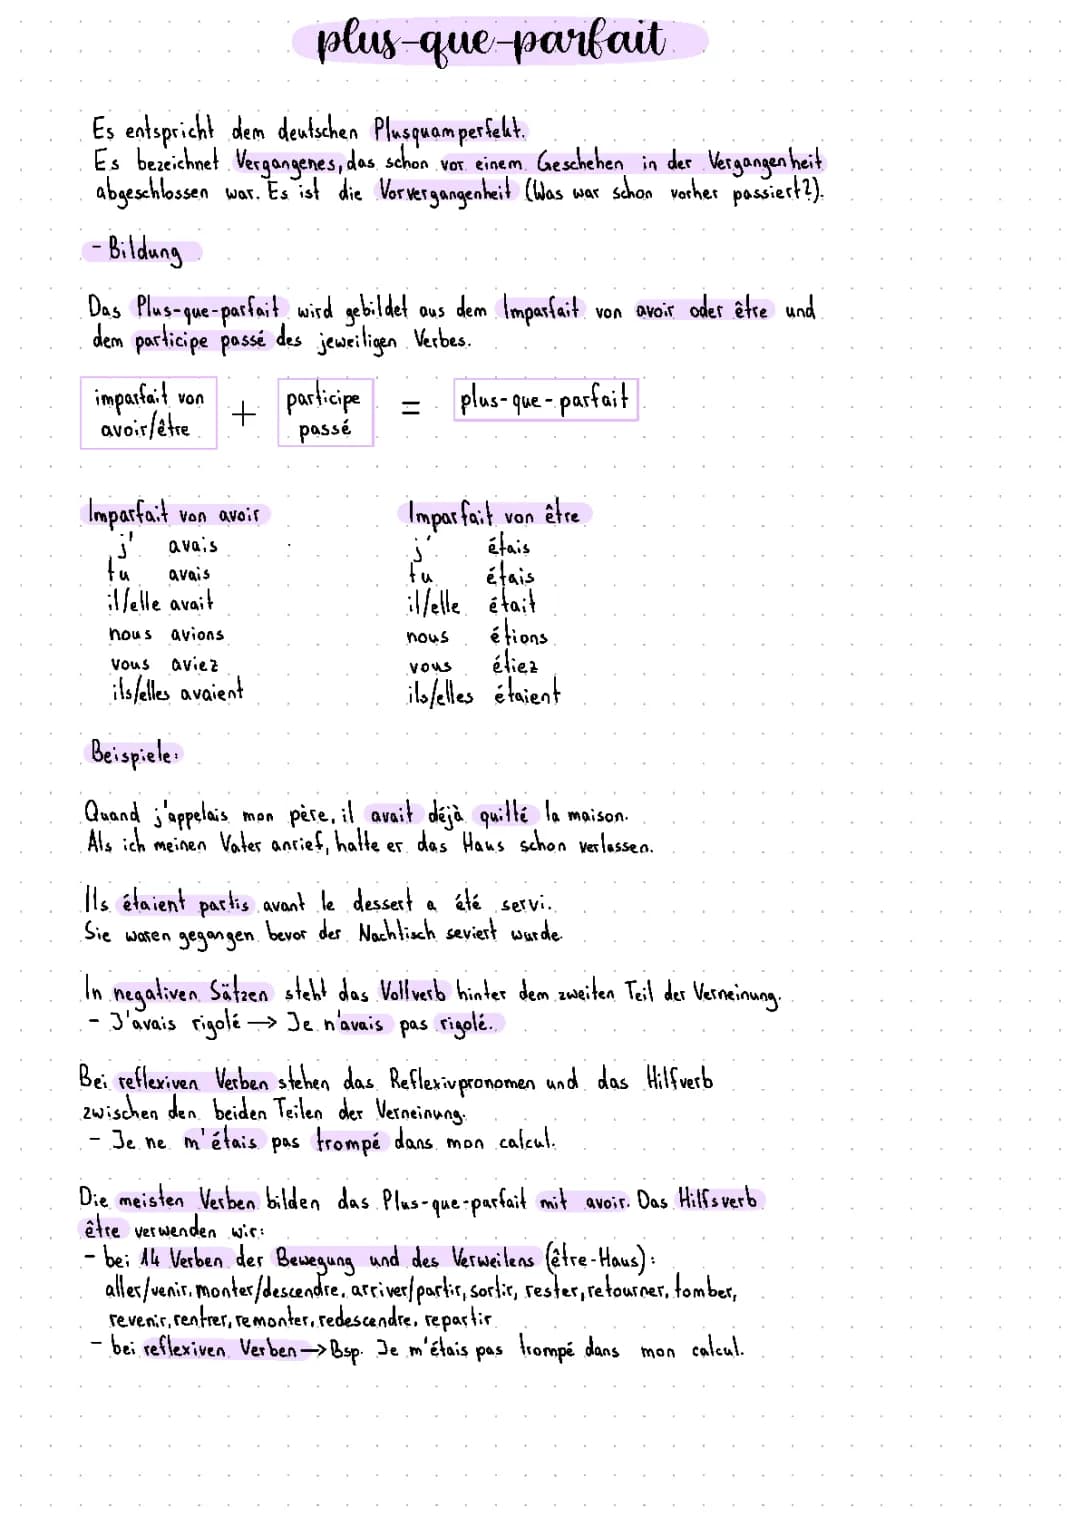 plus-que-parfait
Es entspricht dem deutschen Plusquamperfekt.
Es bezeichnet Vergangenes, das schon vor einem Geschehen in der Vergangenheit
abgeschlossen war. Es ist die Vorvergangenheit (Was war schon vorher passiert?).
- Bildung
Das Plus-que-parfait wird gebildet aus dem Imparfait von avoir oder être und
dem participe passé des jeweiligen Verbes.
imparfait von avoir/être + participe passé = plus-que-parfait
Imparfait von avoir
j' avais
tu avais
il/elle avait
nous avions
vous aviez
ils/elles avaient
Imparfait von être
j' étais
tu étais
il/elle était
nous étions
vous étiez
ils/elles étaient
Beispiele:
Quand j'appelais mon père, il avait déjà quitté la maison.
Als ich meinen Vater anrief, hatte er das Haus schon verlassen.
Ils étaient partis avant le dessert a été servi.
Sie waren gegangen bevor der Nachtisch seviert wurde.
In negativen Sätzen steht das Vollverb hinter dem zweiten Teil der Verneinung.
- J'avais rigolé → Je n'avais pas rigolé.
Bei reflexiven Verben stehen das Reflexivpronomen und das Hilfverb
zwischen den beiden Teilen der Verneinung.
- Je ne m'étais pas trompé dans mon calcul.
Die meisten Verben bilden das Plus-que-parfait mit avoir. Das Hilfsverb
être verwenden wir:
- bei 14 Verben der Bewegung und des Verweilens (être-Haus):
aller/venir, monter/descendre, arriver/partir, sortir, rester, retourner, tomber,
revenir, rentrer, remonter, redescendre, repartir
- bei reflexiven Verben → Bsp. Je m'étais pas trompé dans mon calcul.